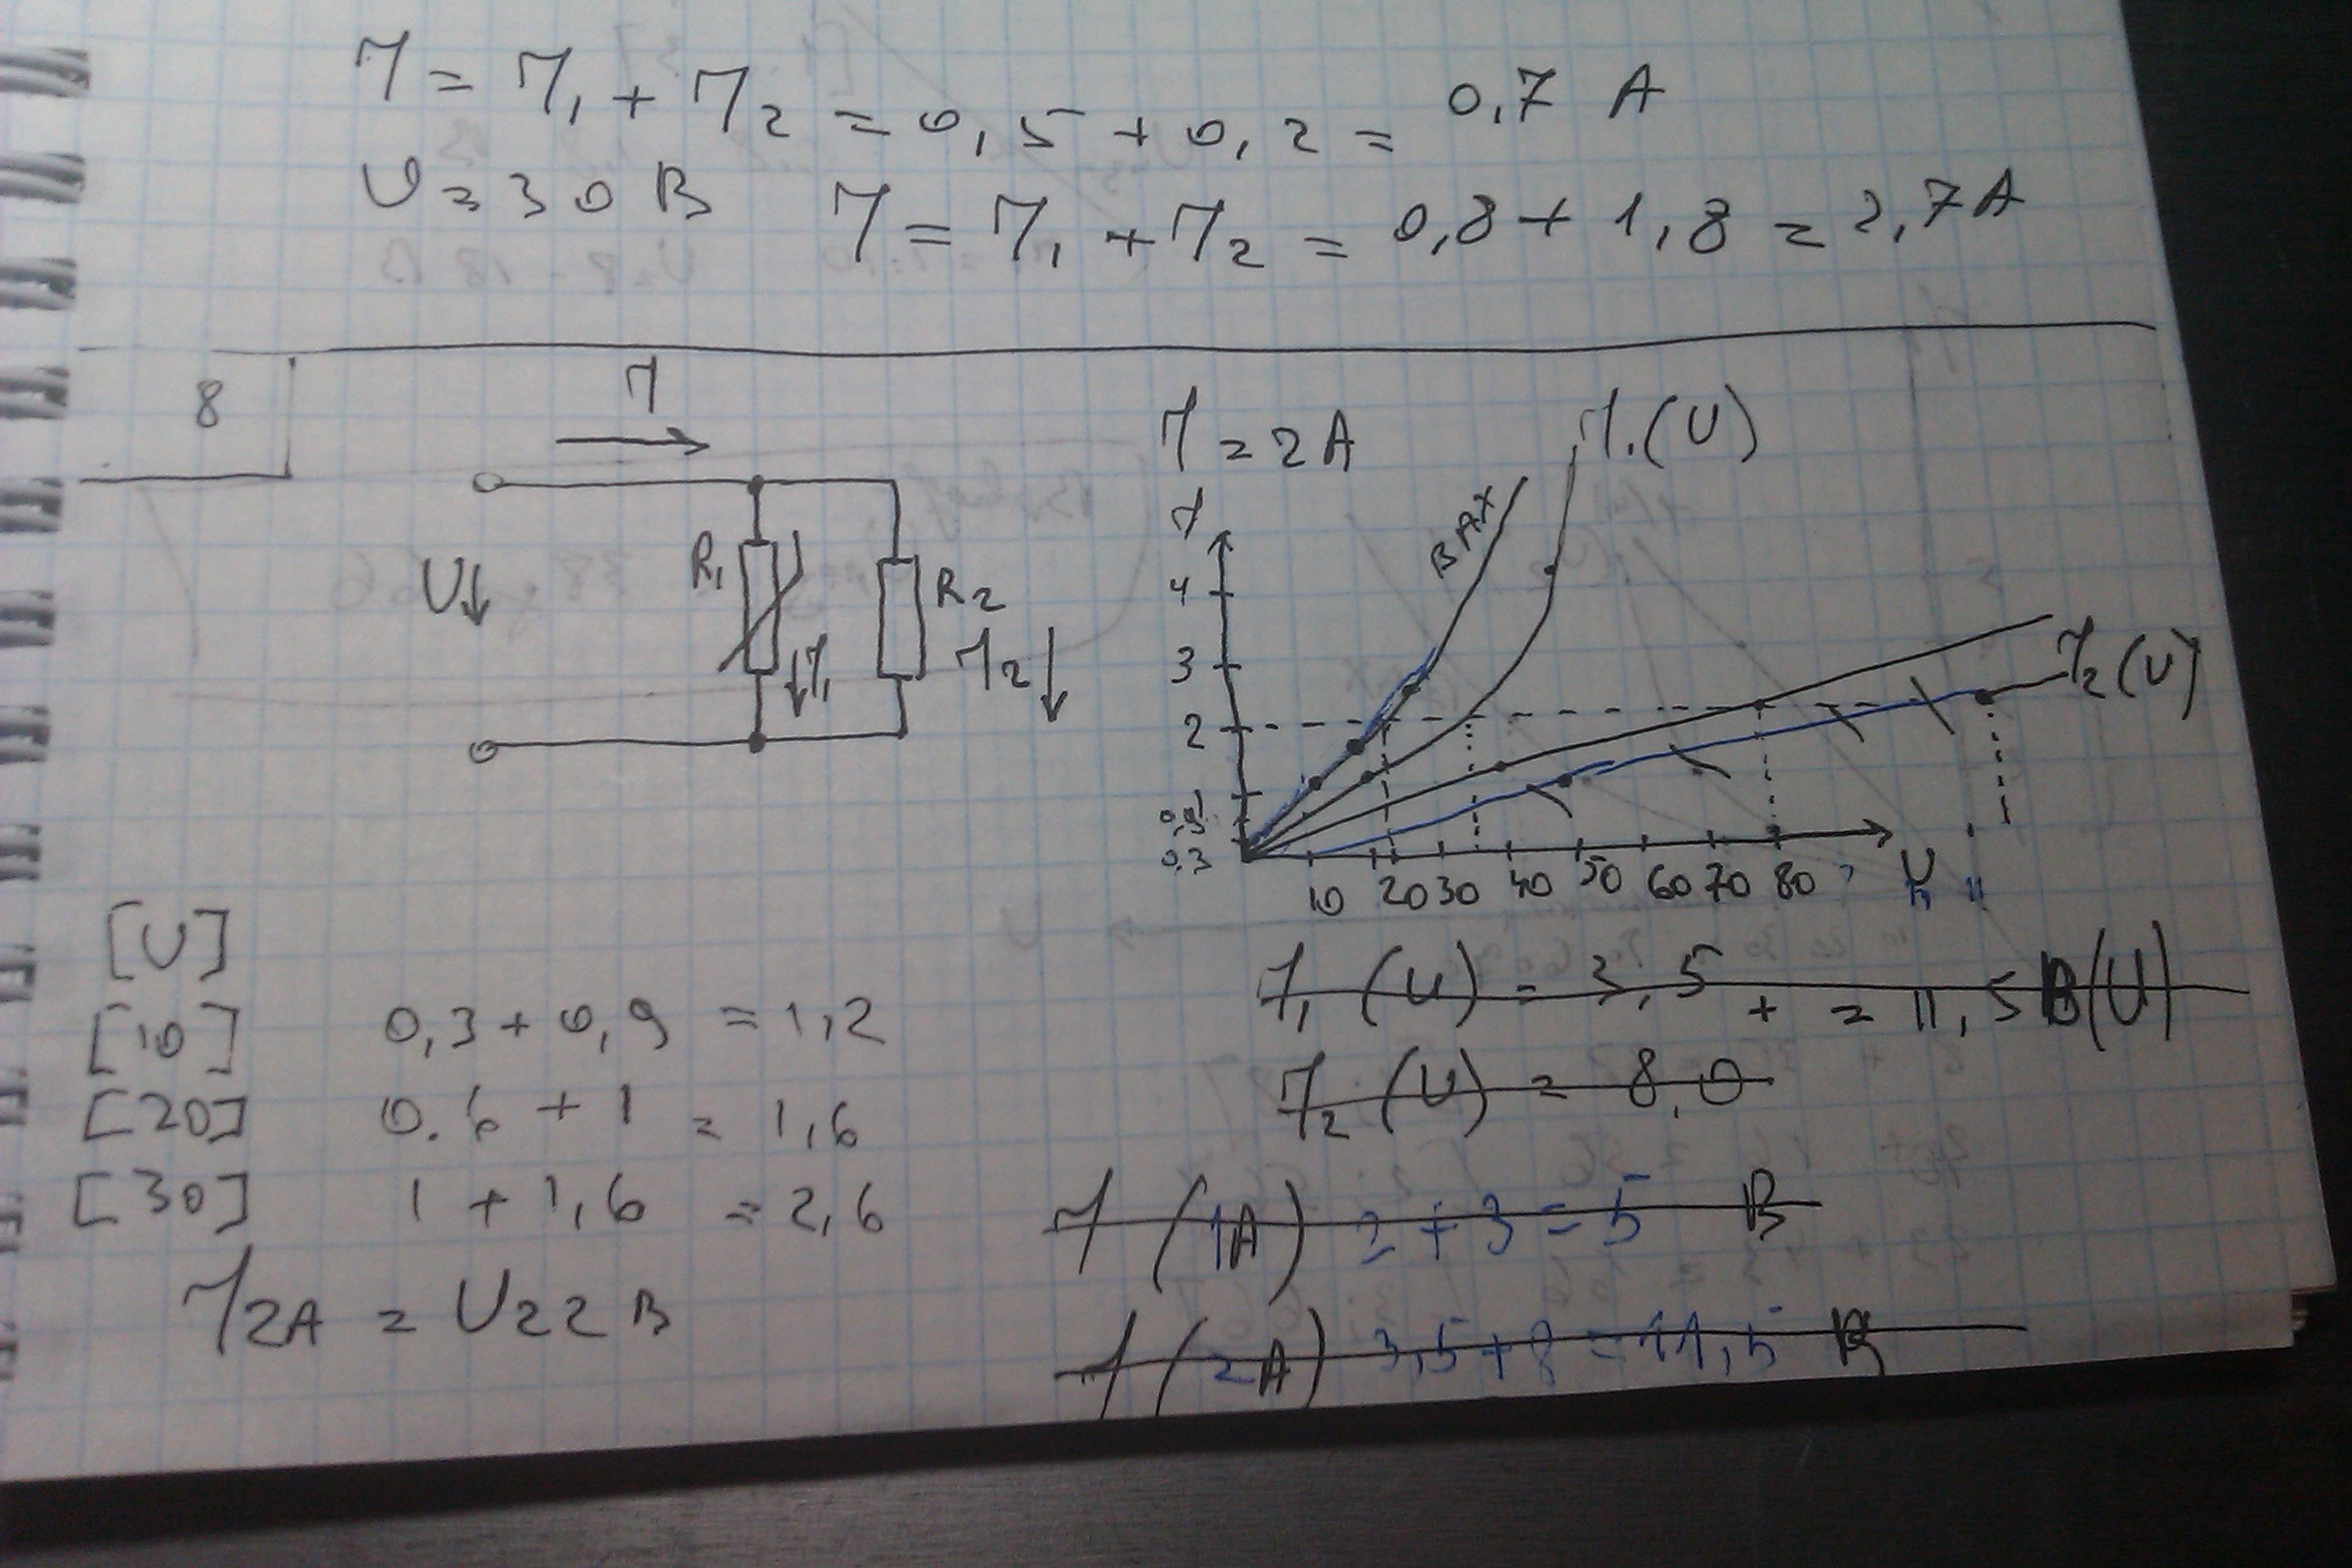 I = I₁ + I₂ = 0,5 + 0,2 = 0,7 A
U = 30 В I = I₁ + I₂ = 0,8 + 1,8 = 2,7 A
8
I
U↓
R₁
↓I₁
R₂
I₂↓
I = 2A
I₁(U)
ВАХ
I
4
3
2
1
0,3
I₂(U)
10 20 30 40 50 60 70 80 U
[U]
[10] 0,3 + 0,9 = 1,2
[20] 0.6 + 1 = 1,6
[30] 1 + 1,6 = 2,6
I2A = U22 В
I₁ (U) = 3,5 + = 11,5 В(U)
I₂ (U) = 8,0
I (1A) 2 + 3 = 5 В
I (2A) 3,5 + 8 = 11,5 В